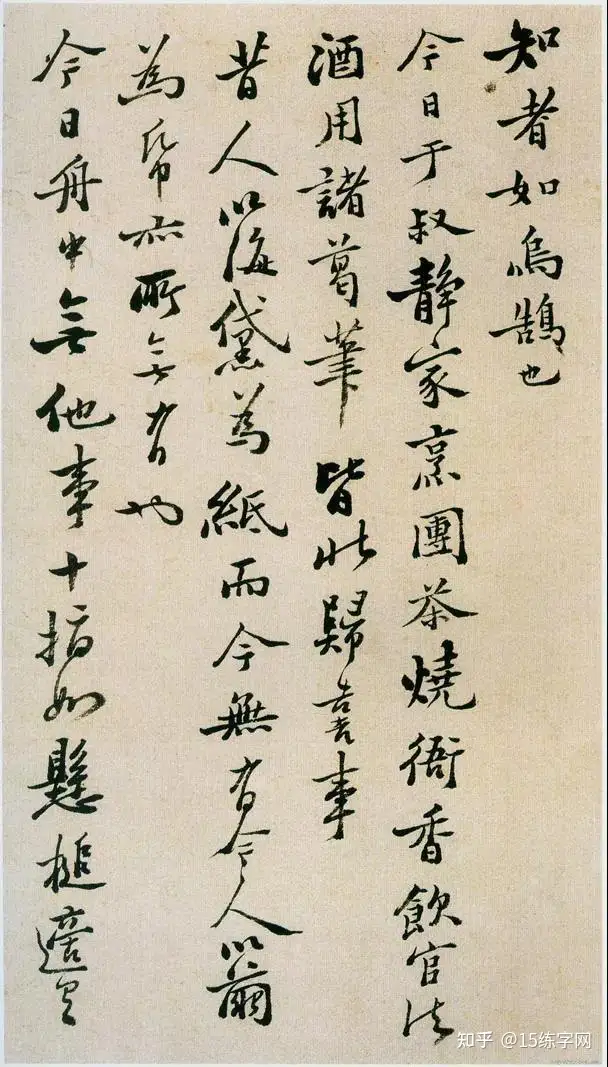 知者如鳴鵠也
今日于叔靜家烹團茶燒衙香飲官法
酒用諸葛筆皆北歸喜事
昔人以海黛為紙而今無有今人以繭
為帋亦所無有也
今日舟中無他事十指如懸槌適有
知乎 @15练字网